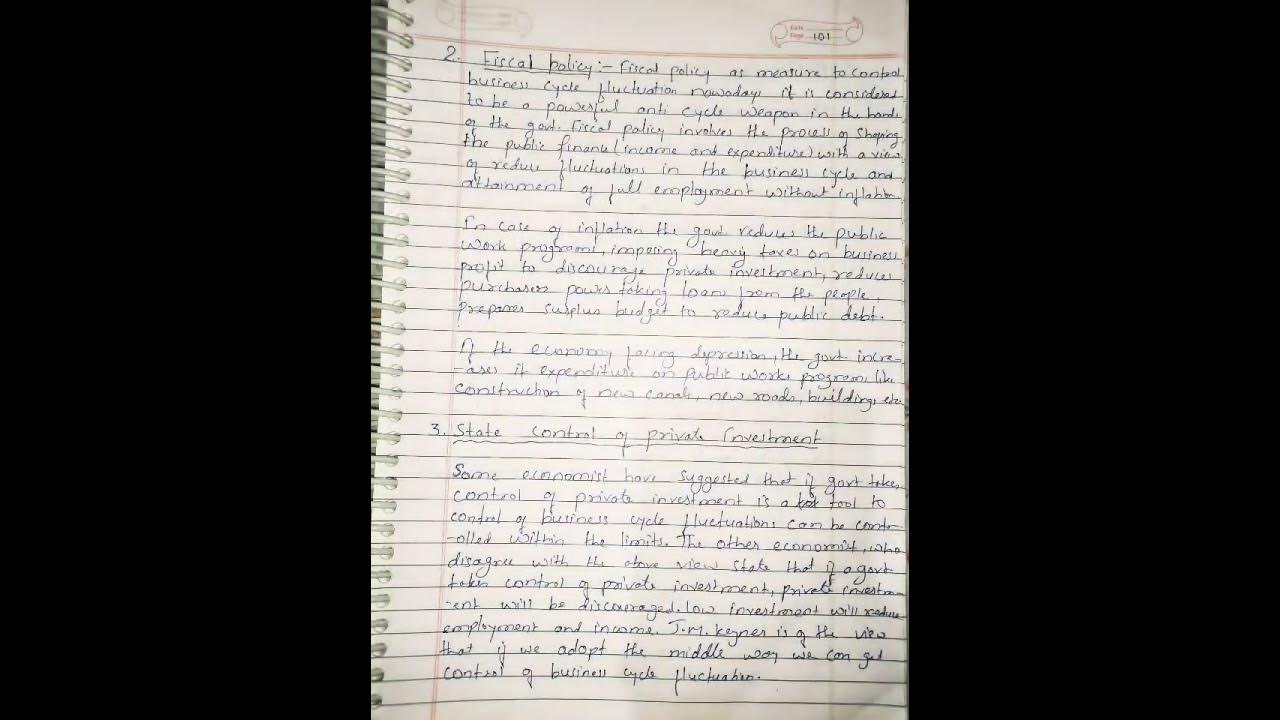 Date
Page 101
2. Fiscal policy:- Fiscal policy as measure to control
business cycle fluctuation nowadays it is considered
to be a powerful anti cycle weapon in the hands
of the govt. Fiscal policy involves the process of shaping
the public finance (income and expenditure) with a view
of reduce fluctuations in the business cycle and
attainment of full employment without inflation.
In case of inflation the govt reduces the public
work programs, imposing heavy taxes on business
profit to discourage private investment, reduces
purchaser power taking loans from the people,
prepares surplus budget to reduce public debt.
If the economy facing depression, the govt incre-
-ases it expenditure on public works programs like
construction of new canals, new roads, buildings etc.
3. State control of private Investment
Some economist have suggested that if govt takes
control of private investment is a tool to
control of business cycle fluctuations can be contr-
-olled within the limits. The other economist, who
disagree with the above view state that if a govt
takes control of private investment, private investm-
-ent will be discouraged. low investment will reduce
employment and income. J.M. Keynes is of the view
that if we adopt the middle way we can get
control of business cycle fluctuation.